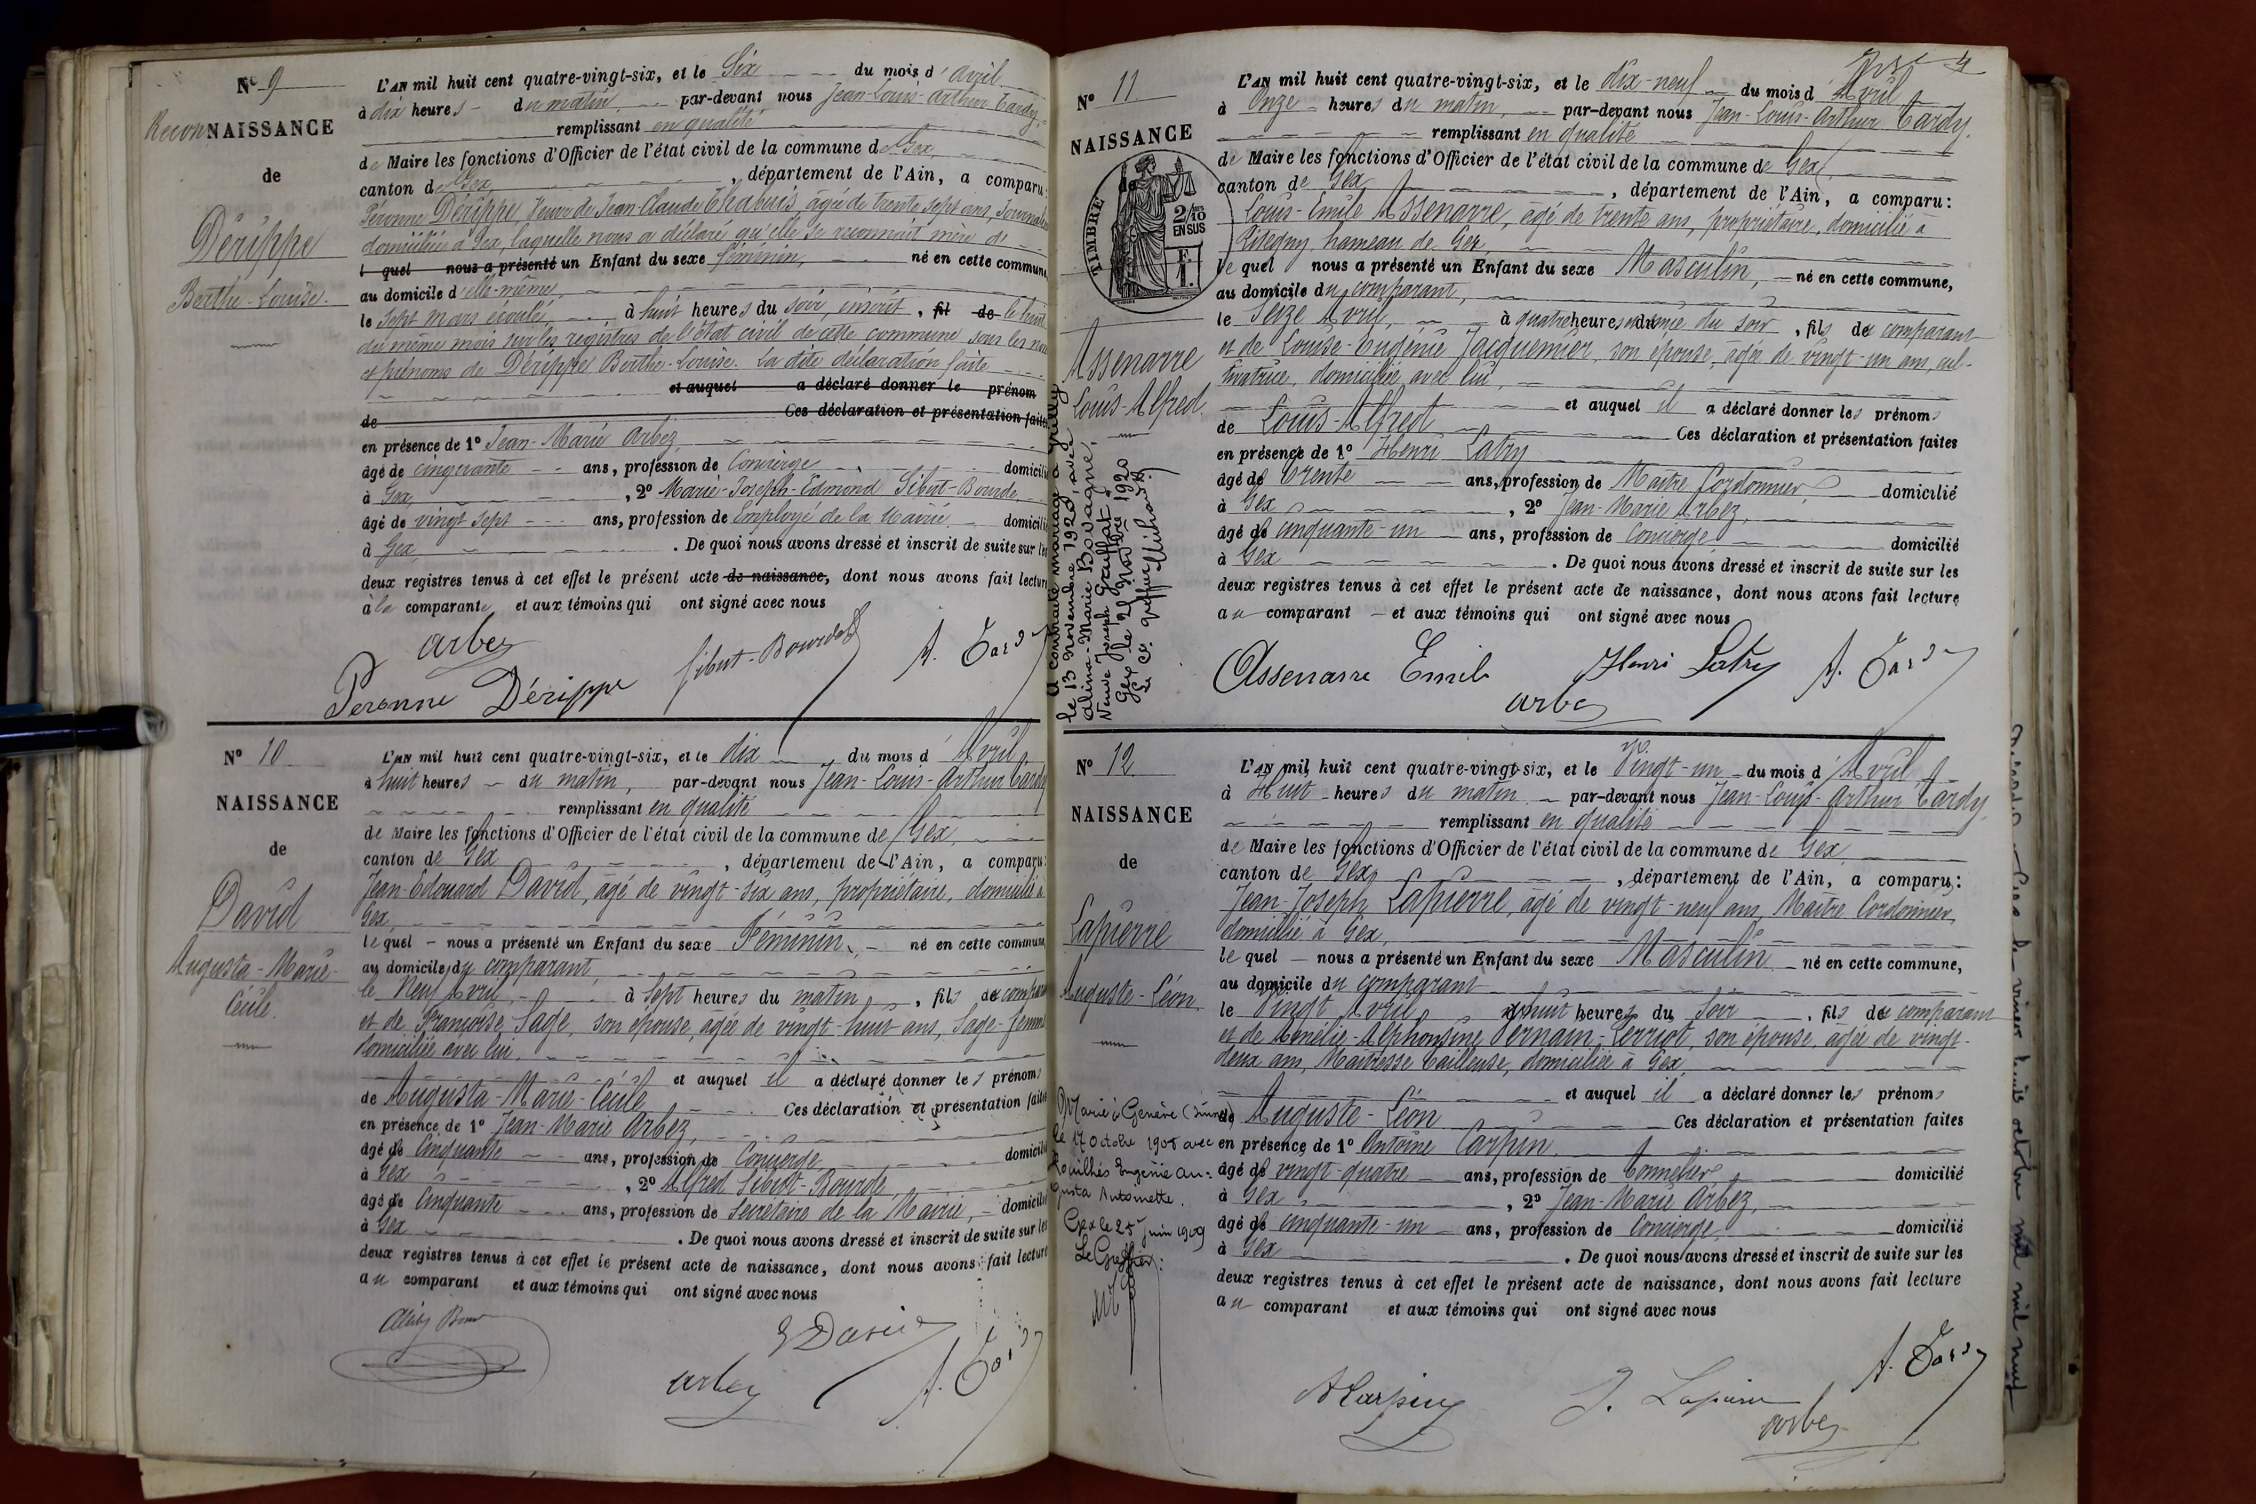 Nº 9
ReconNAISSANCE
de
Dérippe
Berthe-Louise.
L'AN mil huit cent quatre-vingt-six, et le Six du mois d'Avril
à dix heures du matin, par-devant nous Jean-Louis-Arthur Tardy,
remplissant en qualité
de Maire les fonctions d'Officier de l'état civil de la commune de Gex,
canton de Gex, département de l'Ain, a comparu:
Péronne Dérippe Veuve de Jean-Claude Chabuis, âgée de trente sept ans, Journalière
domiciliée à Gex, laquelle nous a déclaré qu'elle se reconnait mère d'
l quel nous a présenté un Enfant du sexe féminin, né en cette commune
au domicile d'elle-même,
le Sept Mars écoulé, à huit heures du soir, inscrit, fil de le huit
du même mois sur les registres de l'état civil de cette commune sous les nom
et prénoms de Dérippe Berthe-Louise. La dite déclaration faite
et auquel a déclaré donner le prénom
de Ces déclaration et présentation faites
en présence de 1º Jean-Marie Arbez
âgé de cinquante ans, profession de Concierge domicilié
à Gex, 2º Marie-Joseph-Edmond Sibut-Bourde
âgé de vingt sept ans, profession de Employé de la Mairie domicilié
à Gex. De quoi nous avons dressé et inscrit de suite sur les
deux registres tenus à cet effet le présent acte de naissance, dont nous avons fait lecture
à la comparante et aux témoins qui ont signé avec nous
Arbez
Sibut-Bourde
A. Tardy
Peronne Dérippe
Nº 10
NAISSANCE
de
David
Augusta-Marie-
Cécile.
L'AN mil huit cent quatre-vingt-six, et le dix du mois d'Avril
à huit heures du matin, par-devant nous Jean-Louis-Arthur Tardy
remplissant en qualité
de Maire les fonctions d'Officier de l'état civil de la commune de Gex,
canton de Gex, département de l'Ain, a comparu:
Jean-Edouard David, âgé de vingt-six ans, propriétaire, domicilié à
Gex,
lequel nous a présenté un Enfant du sexe Féminin, né en cette commune
au domicile du comparant,
le Neuf Avril, à Sept heures du matin, fils de comparant
et de Françoise Sage, son épouse, âgée de vingt-huit ans, Sage-femme
domiciliée avec lui,
et auquel il a déclaré donner les prénoms
de Augusta-Marie-Cécile Ces déclaration et présentation faites
en présence de 1º Jean-Marie Arbez,
âgé de Cinquante ans, profession de Concierge domicilié
à Gex, 2º Alfred Sibut-Bourde,
âgé de Cinquante ans, profession de Secrétaire de la Mairie, domicilié
à Gex. De quoi nous avons dressé et inscrit de suite sur les
deux registres tenus à cet effet le présent acte de naissance, dont nous avons fait lecture
au comparant et aux témoins qui ont signé avec nous
E David
Arbez
A. Tardy
4
Nº 11
NAISSANCE
de
TIMBRE
2/10
EN SUS
F.
1.
Assenarre
Louis-Alfred
A contracté mariage à Gilly
le 13 novembre 1920, avec
Alima-Marie Bovagne,
Veuve Joseph Graffat
Gex le 29 Novembre 1920
Le Cs Greffier
L'AN mil huit cent quatre-vingt-six, et le dix-neuf du mois d'Avril
à Onze heures du matin, par-devant nous Jean-Louis-Arthur Tardy,
remplissant en qualité
de Maire les fonctions d'Officier de l'état civil de la commune de Gex,
canton de Gex, département de l'Ain, a comparu:
Louis-Emile Assenarre, âgé de trente ans, propriétaire, domicilié à
Pitegny hameau de Gex
lequel nous a présenté un Enfant du sexe Masculin, né en cette commune,
au domicile du comparant,
le Seize Avril, à quatre heures du soir, fils de comparant
et de Louise-Eugénie Jacquemier, son épouse, âgée de vingt-un ans, cul-
tivatrice, domiciliée avec lui,
et auquel il a déclaré donner les prénoms
de Louis-Alfred Ces déclaration et présentation faites
en présence de 1º Henri Latry
âgé de Trente ans, profession de Maître Cordonnier, domicilié
à Gex, 2º Jean-Marie Arbez,
âgé de cinquante-un ans, profession de Concierge domicilié
à Gex. De quoi nous avons dressé et inscrit de suite sur les
deux registres tenus à cet effet le présent acte de naissance, dont nous avons fait lecture
au comparant et aux témoins qui ont signé avec nous
Assenarre Emile
Henri Latry
A. Tardy
Arbez
Nº 12
NAISSANCE
de
Lapierre
Auguste-Léon
Marié à Genève (Suisse)
le 17 Octobre 1908 avec
Rouilhès Eugénie Au-
gusta Antoinette.
Gex le 25 Juin 1909
Le Greffier:
L'AN mil huit cent quatre-vingt-six, et le Vingt-un du mois d'Avril
à Huit heures du matin par-devant nous Jean-Louis-Arthur Tardy,
remplissant en qualité
de Maire les fonctions d'Officier de l'état civil de la commune de Gex,
canton de Gex, département de l'Ain, a comparu:
Jean-Joseph Lapierre, âgé de vingt-neuf ans, Maître Cordonnier,
domicilié à Gex,
lequel nous a présenté un Enfant du sexe Masculin né en cette commune,
au domicile du comparant
le Vingt Avril à huit heures du Soir, fils de comparant
et de Amélie-Alphonsine Pernain-Perriot, son épouse, âgée de vingt-
deux ans, Maîtresse Tailleuse, domiciliée à Gex,
et auquel il a déclaré donner les prénoms
Auguste-Léon Ces déclaration et présentation faites
en présence de 1º Antoine Carpin
âgé de vingt-quatre ans, profession de Tonnelier domicilié
à Gex, 2º Jean-Marie Arbez,
âgé de cinquante-un ans, profession de Concierge domicilié
à Gex. De quoi nous avons dressé et inscrit de suite sur les
deux registres tenus à cet effet le présent acte de naissance, dont nous avons fait lecture
au comparant et aux témoins qui ont signé avec nous
A. Tardy
A Carpin
J. Lapierre
Arbez